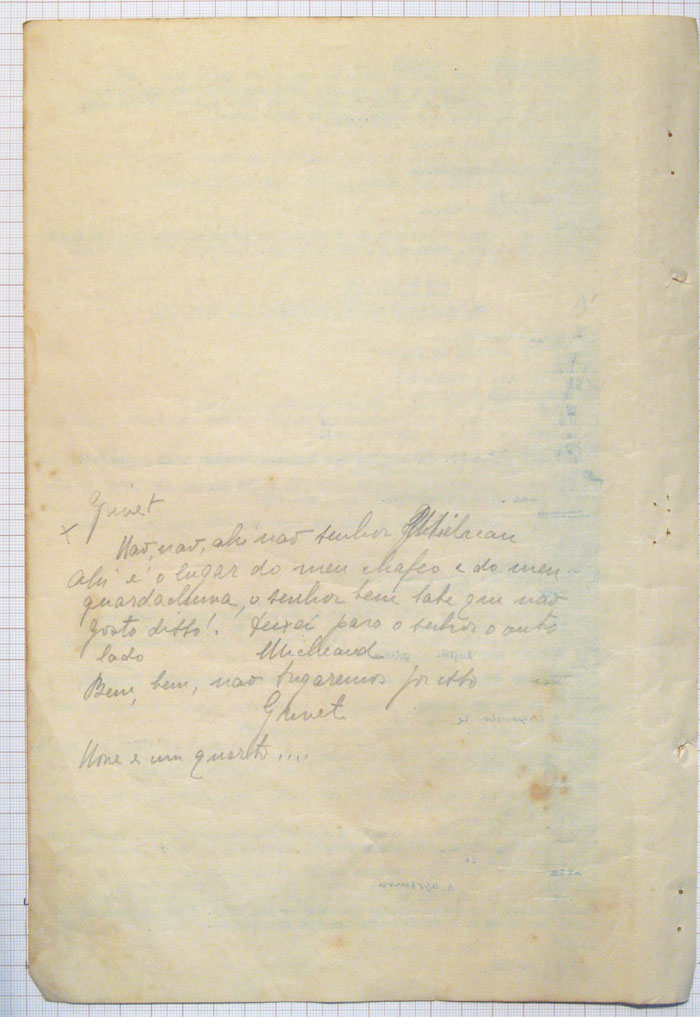 Grivet
x
Nao, nao, ahi nao senhor Michaud
Ahi é o lugar do meu chapeo e do meu
guardachuva, o senhor bem sabe que nao
gosto disso! deixei para o senhor o outro
lado Michaud
Bem, bem, nao brigaremos por isso
Grivet
Nove e um quarto....